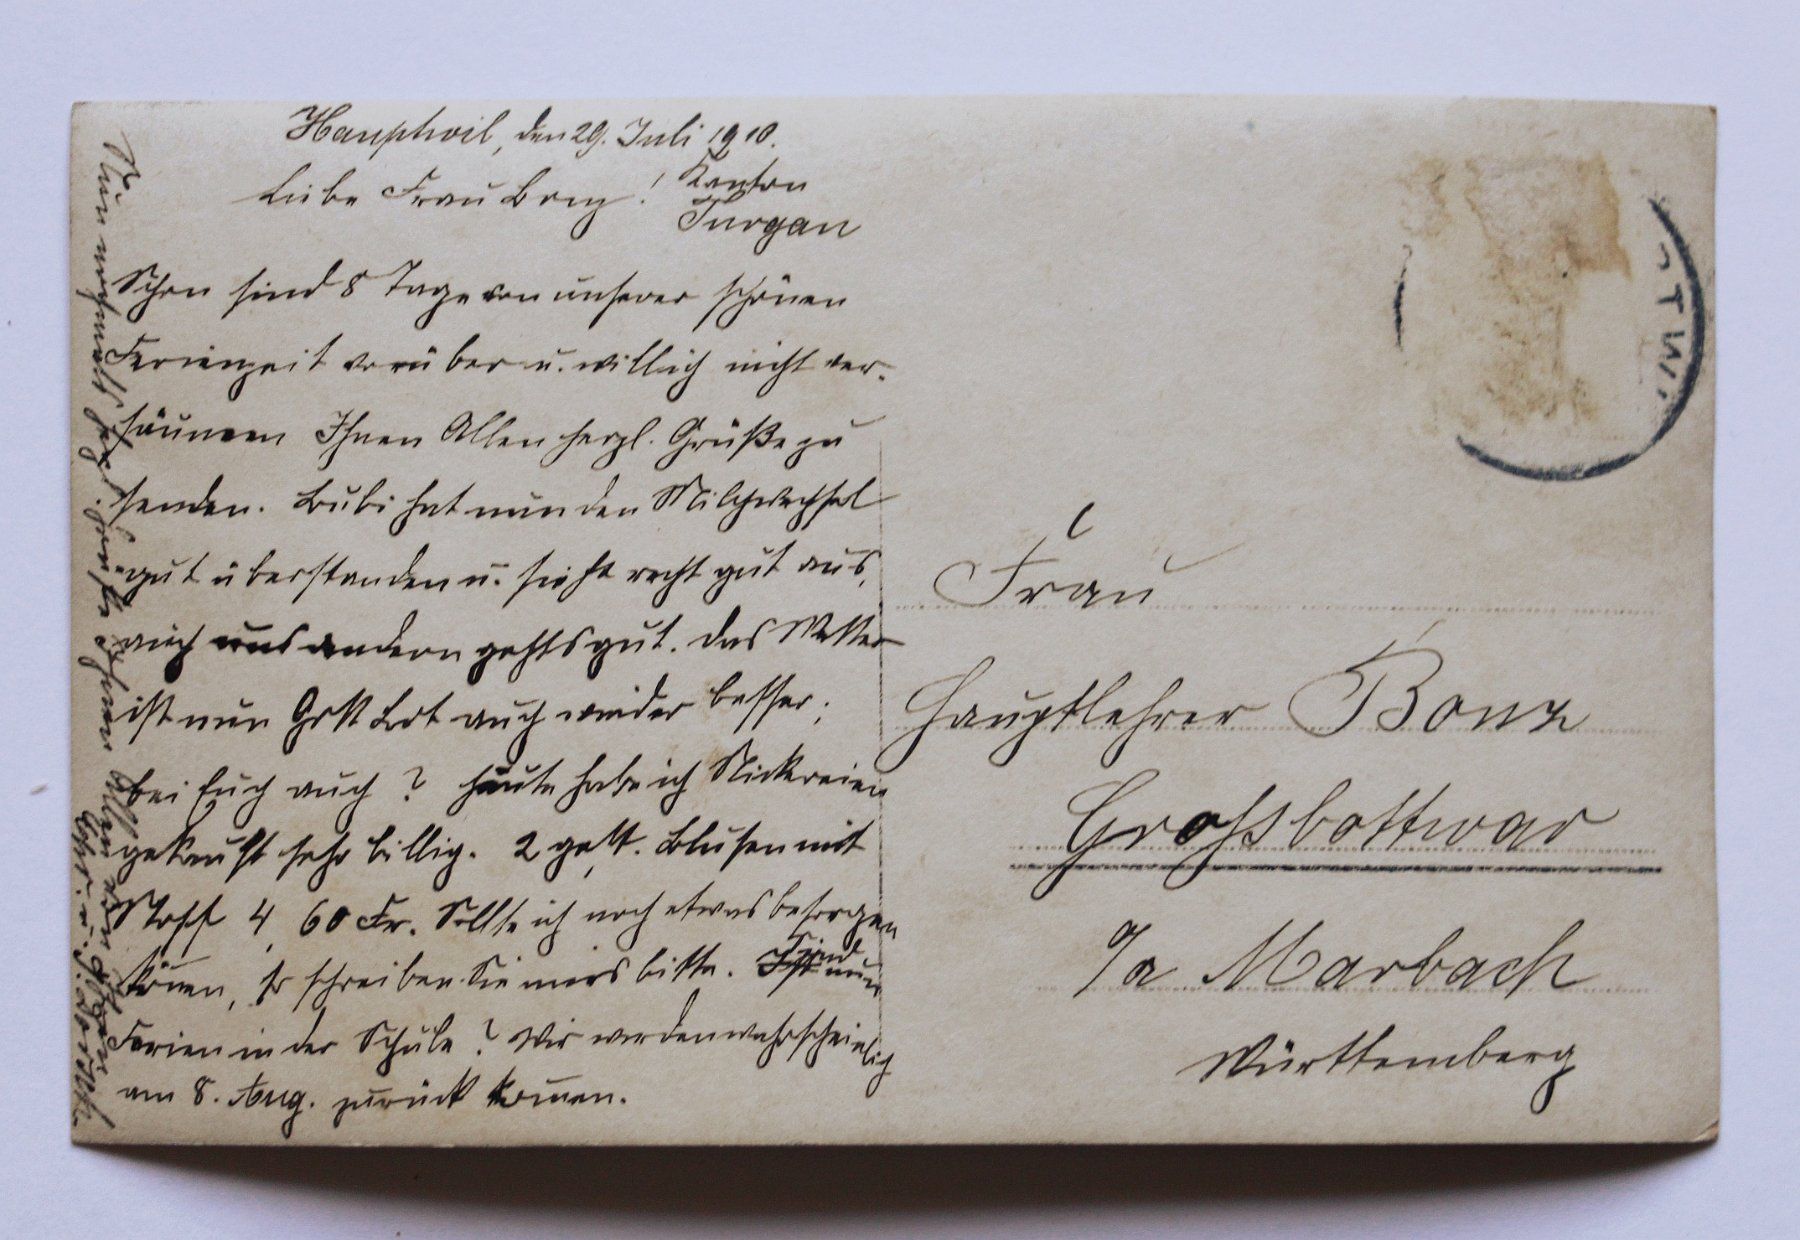 Hauptwil, den 29. Juli 1910.
Kanton
Turgau
Liebe Frau Bonz!
Schon sind 8 Tage von unserer schönen
Ferienzeit vorüber u. will ich nicht ver-
säumen Ihnen Allen herzl. Grüße zu
senden. Bubi hat nun den Milchwechsel
gut überstanden u. sieht recht gut aus,
auch uns andern gehts gut. Das Wetter
ist nun Gott Lob auch wieder besser;
bei Euch auch? Heute habe ich Stickereien
gekauft sehr billig. 2 gest. Blusen mit
Stoff 4,60 Fr. Sollte ich noch etwas besorgen
können, so schreiben Sie mirs bitte. Sind nun
Ferien in der Schule? Wir werden wahrscheinlich
am 8. Aug. zurück kommen.
Nun nochmals herzl. Grüße Ihnen Allen von Ihrer
Frau
Hauptlehrer Bonz
Grossbottwar
o/a Marbach
Württemberg